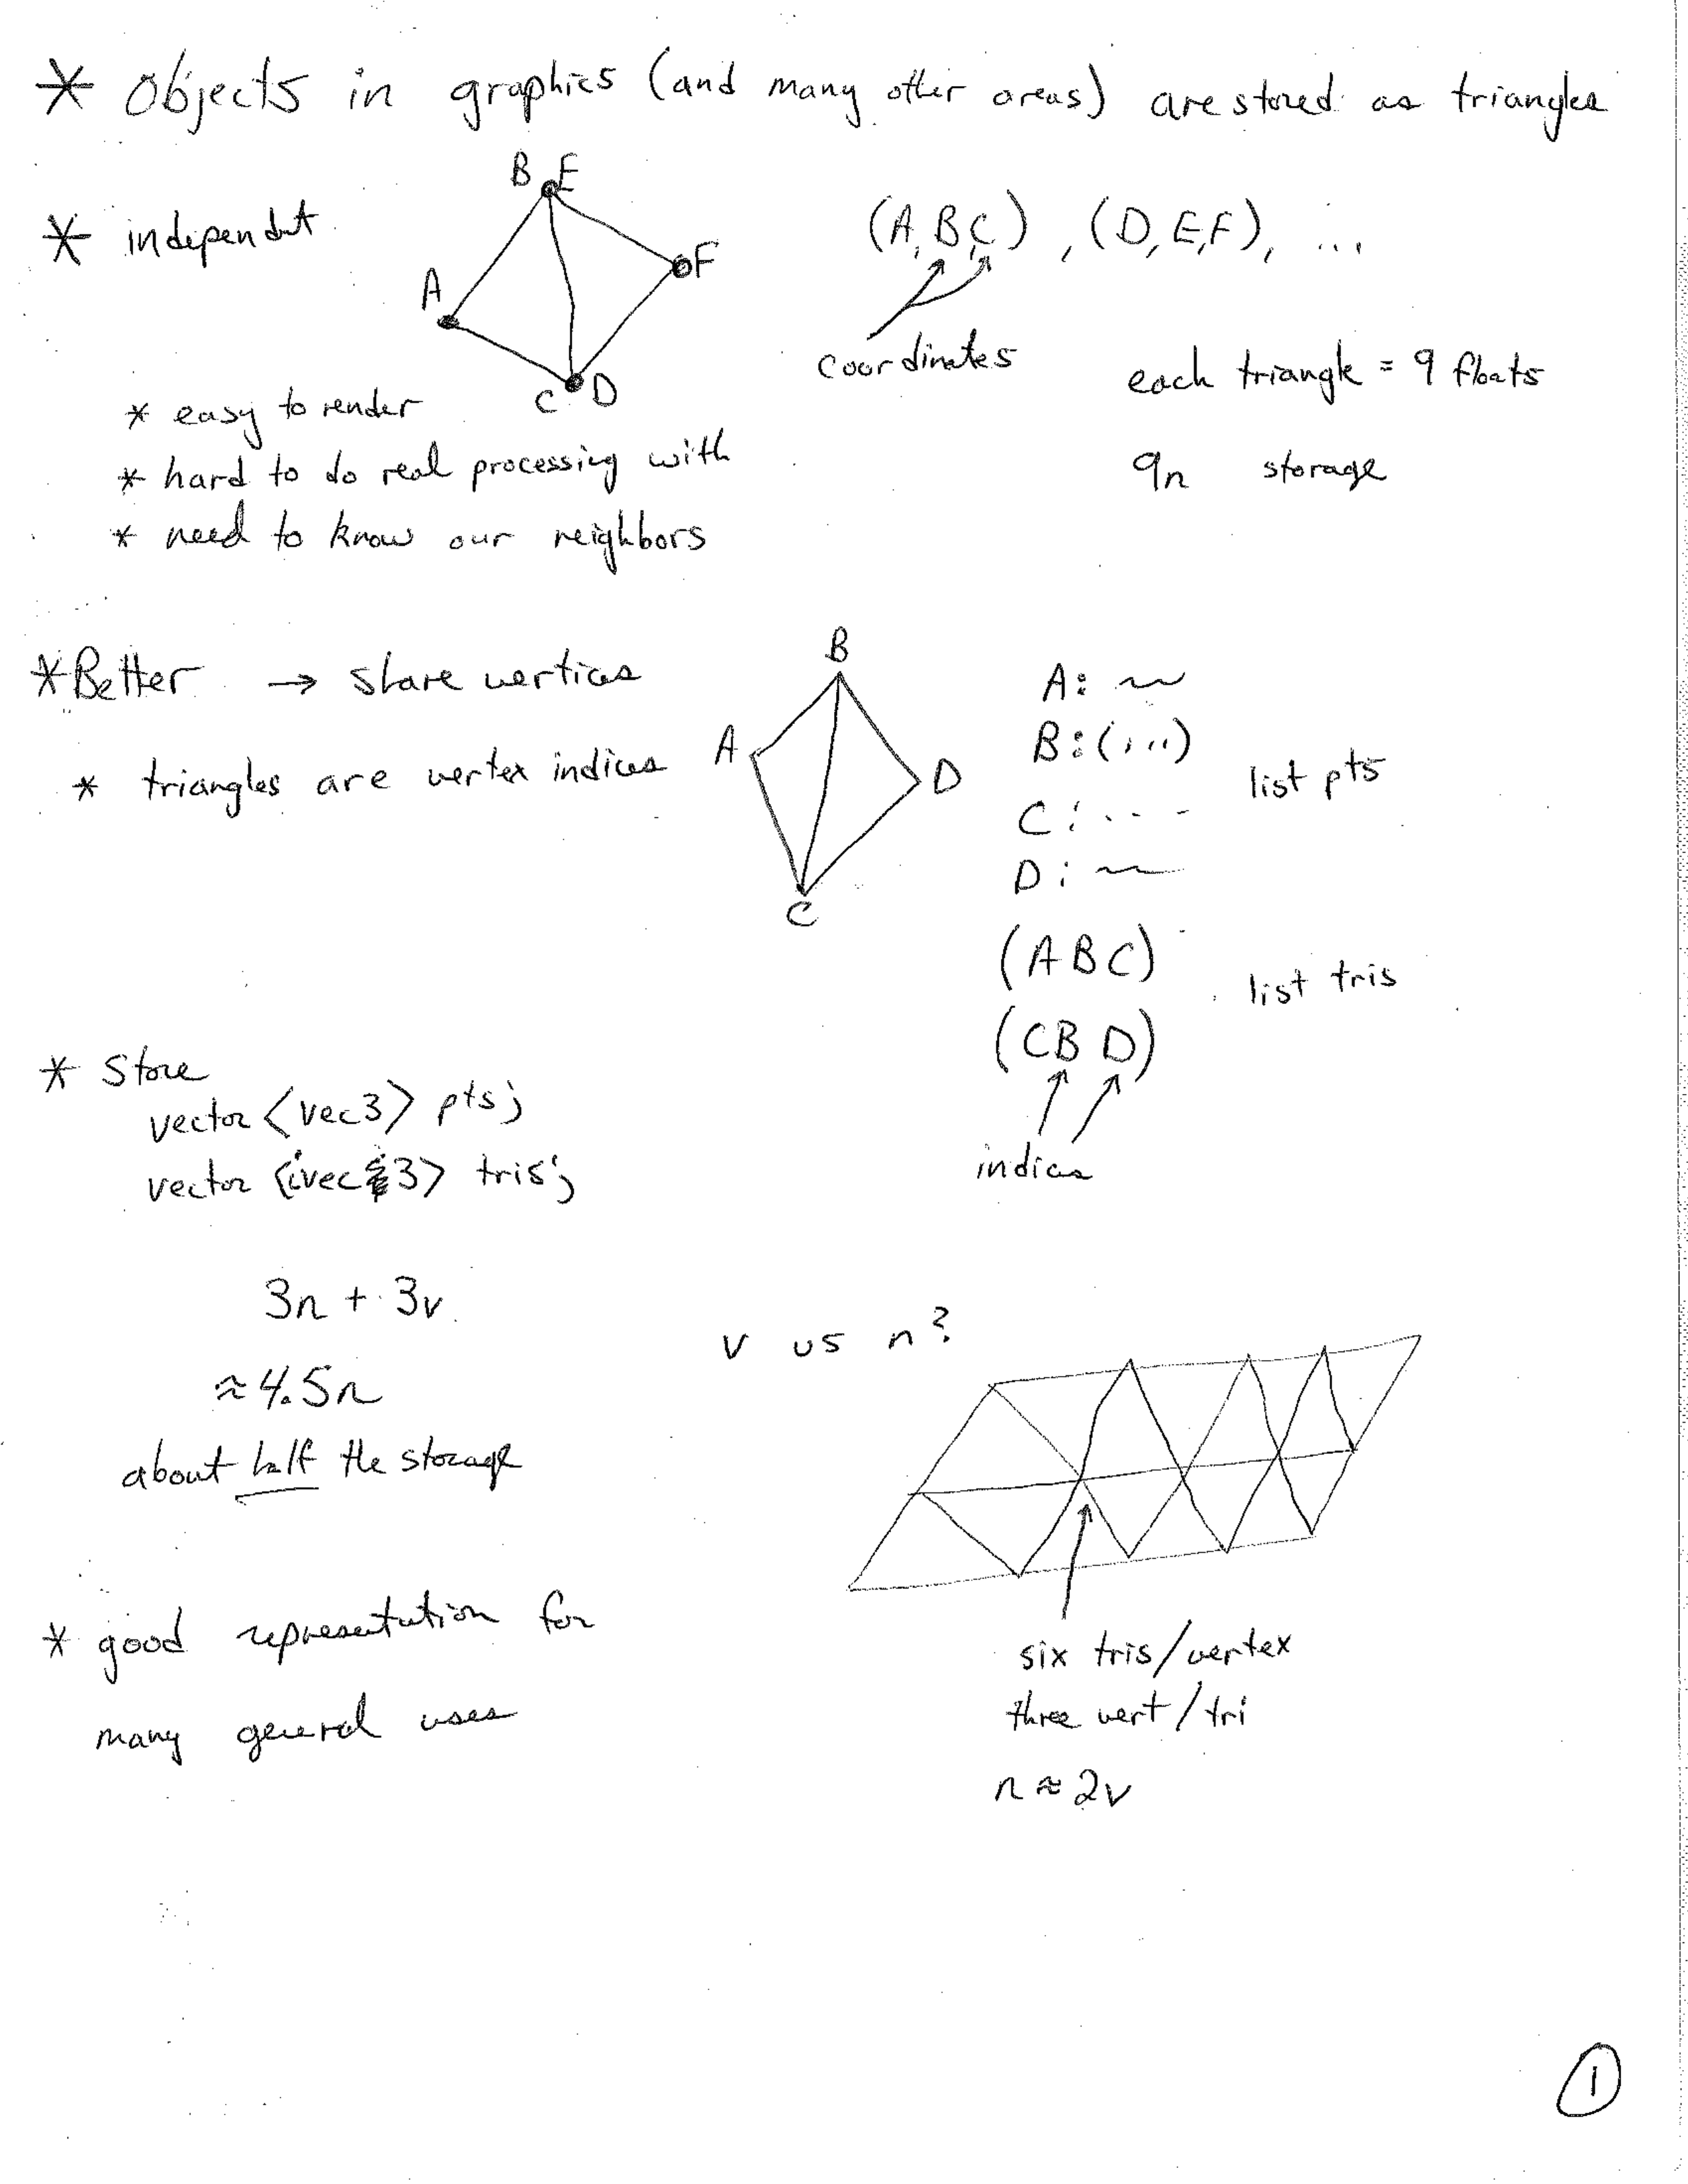 * Objects in graphics (and many other areas) are stored as triangles
* independent
B E
A
F
C D
(A, B, C), (D, E, F), ...
coordinates
each triangle = 9 floats
9n storage
* easy to render
* hard to do real processing with
* need to know our neighbors
* Better → share vertices
* triangles are vertex indices
B
A
D
C
A: ~
B: (, , ,)
C: ...
D: ~
list pts
(A B C)
(C B D)
list tris
indices
* Store
vector <vec3> pts;
vector <ivec3> tris;
3n + 3v
≈ 4.5n
about half the storage
v vs n?
six tris/vertex
three vert/tri
n ≈ 2v
* good representation for
many general uses
1